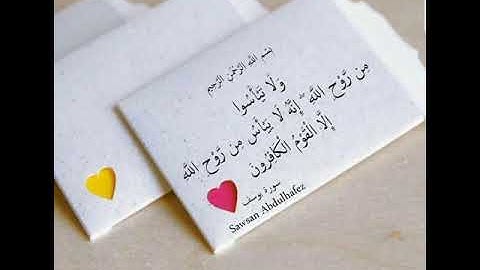 بِسْمِ اللَّهِ الرَّحْمَٰنِ الرَّحِيمِ
وَلَا تَيْأَسُوا
مِن رَّوْحِ اللَّهِ ۖ إِنَّهُ لَا يَيْأَسُ مِن رَّوْحِ اللَّهِ
إِلَّا الْقَوْمُ الْكَافِرُونَ
سورة يوسف
Sawsan Abdulhafez